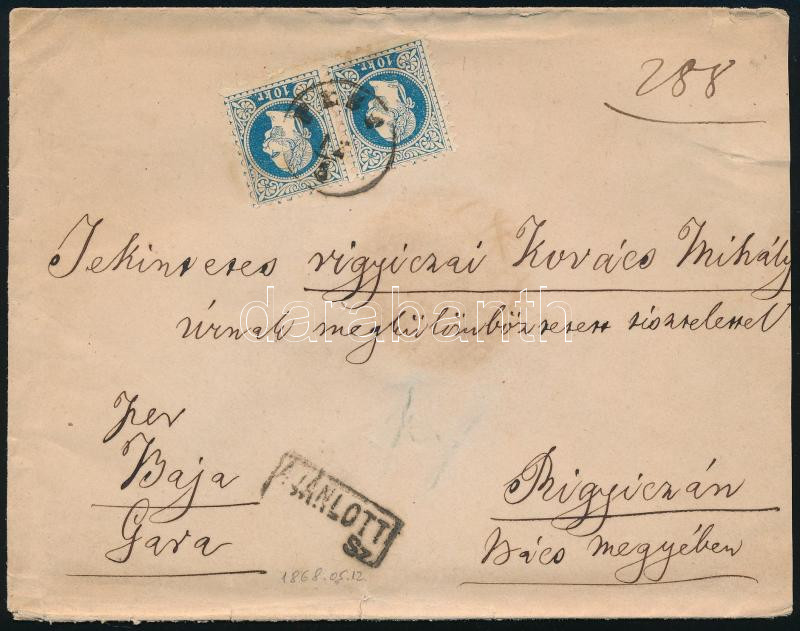 10 kr.
10 kr.
PEST
288
Tekintetes rigyiczai Kovács Mihály
úrnak megkülömböztetett tisztelettel
darabanth
per
Baja
Gara
AJÁNLOTT
Sz.
Rigyiczán
Bács megyében
1868.05.12.